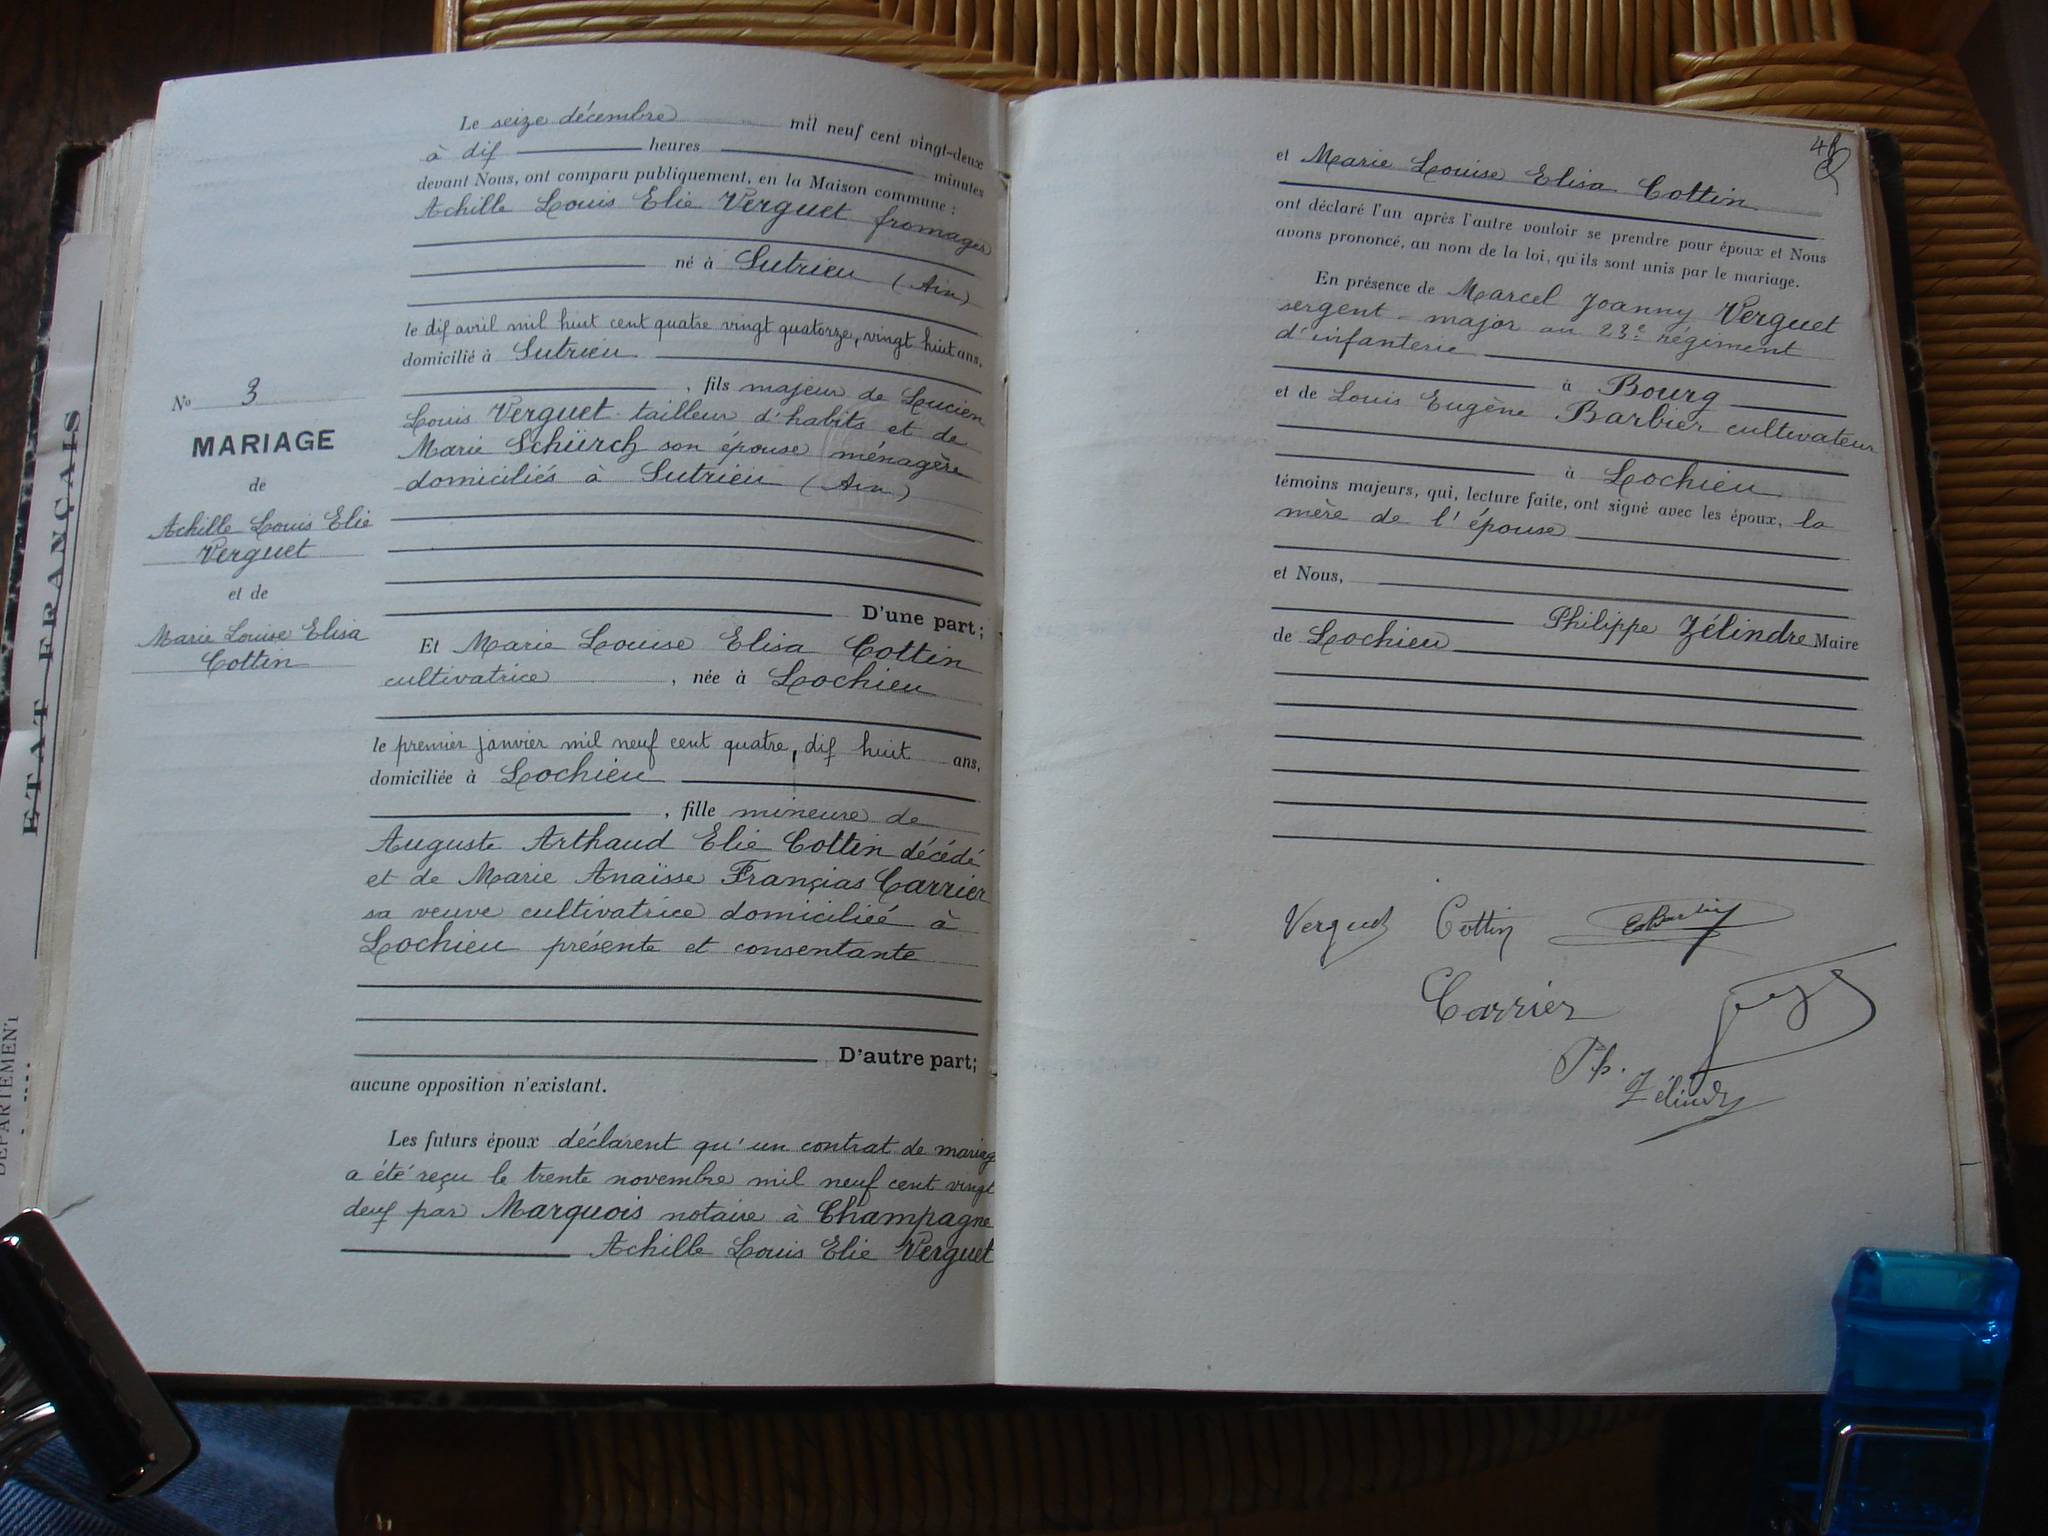 Le seize décembre mil neuf cent vingt-deux
à dix heures minutes
devant Nous, ont comparu publiquement, en la Maison commune :
Achille Louis Elie Verguet fromager
né à Sutrieu (Ain)
le dix avril mil huit cent quatre vingt quatorze, vingt huit ans,
domicilié à Sutrieu
, fils majeur de Lucien
Louis Verguet tailleur d'habits et de
Marie Schürch son épouse ménagère
domiciliés à Sutrieu (Ain)
D'une part;
Et Marie Louise Elisa Cottin
cultivatrice , née à Lochieu
le premier janvier mil neuf cent quatre, dix huit ans,
domiciliée à Lochieu
, fille mineure de
Auguste Arthaud Elie Cottin décédé
et de Marie Anaïsse Françias Carrier
sa veuve cultivatrice domiciliée à
Lochieu présente et consentante
D'autre part;
aucune opposition n'existant.
Les futurs époux déclarent qu'un contrat de mariage
a été reçu le trente novembre mil neuf cent vingt
deux par Marquois notaire à Champagne
Achille Louis Elie Verguet
No 3
MARIAGE
de
Achille Louis Elie
Verguet
et de
Marie Louise Elisa
Cottin
ETAT FRANÇAIS
DEPARTEMENT
et Marie Louise Elisa Cottin
ont déclaré l'un après l'autre vouloir se prendre pour époux et Nous
avons prononcé, au nom de la loi, qu'ils sont unis par le mariage.
En présence de Marcel Joanny Verguet
sergent-major au 23e régiment
d'infanterie
à Bourg
et de Louis Eugène Barbier cultivateur
à Lochieu
témoins majeurs, qui, lecture faite, ont signé avec les époux, la
mère de l'épouse
et Nous,
Philippe Zélindre Maire
de Lochieu
Verguet Cottin
Carrier
Ph. Zélindre